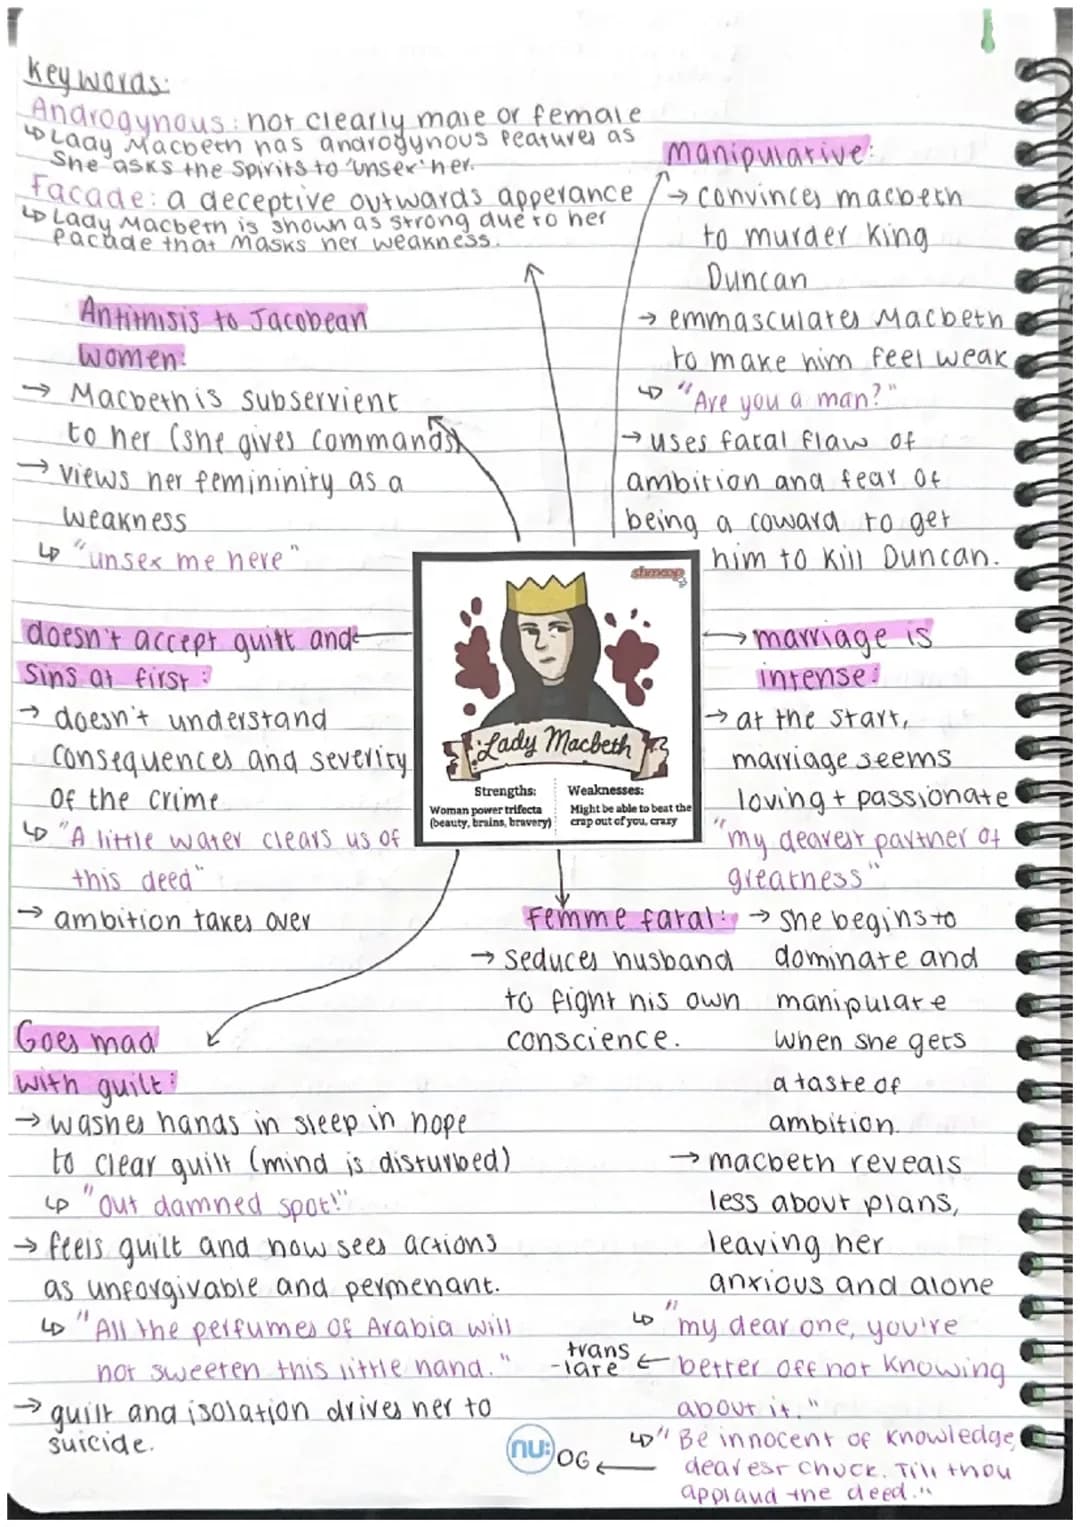 Keywords:
Androgynous: not clearly male or female
↳ Lady Macbeth has androgynous features as
She asks the Spirits to 'unsex' her.
Facade: a deceptive outwards apperance
↳ Lady Macbeth is shown as strong due to her
facade that masks her weakness.
Manipulative:
→ convinces macbeth
to murder King
Duncan
→ emmasculates Macbeth
to make him feel weak
↳ "Are you a man?"
→ uses fatal flaw of
ambition and fear of
being a coward to get
him to kill Duncan.
Antithisis to Jacobean
women:
→ Macbeth is subservient
to her (she gives commands)
→ views her femininity as a
weakness
↳ "unsex me here"
doesn't accept guilt and
Sins at first:
→ doesn't understand
consequences and severity
of the crime
↳ "A little water clears us of
this deed"
→ ambition takes over
shmoop
Lady Macbeth
Strengths:
Woman power trifecta
(beauty, brains, bravery)
Weaknesses:
Might be able to beat the
crap out of you, crazy
→ marriage is
intense:
→ at the start,
marriage seems
loving + passionate
"my dearest partner of
greatness"
→ she begins to
dominate and
manipulate
when she gets
a taste of
ambition.
→ macbeth reveals
less about plans,
leaving her
anxious and alone
↳ "my dear one, you're
better off not knowing
about it."
trans
-late ←
↳ "Be innocent of knowledge,
dearest chuck. Till thou
applaud the deed."
OG ←
Femme fatal:
→ seduces husband
to fight his own
conscience.
Goes mad
with guilt:
→ washes hands in sleep in hope
to clear guilt (mind is disturbed)
↳ "Out damned spot!"
→ feels guilt and now sees actions
as unforgivable and permenant.
↳ "All the perfumes of Arabia will
not sweeten this little hand."
→ guilt and isolation drives her to
suicide.
nu: